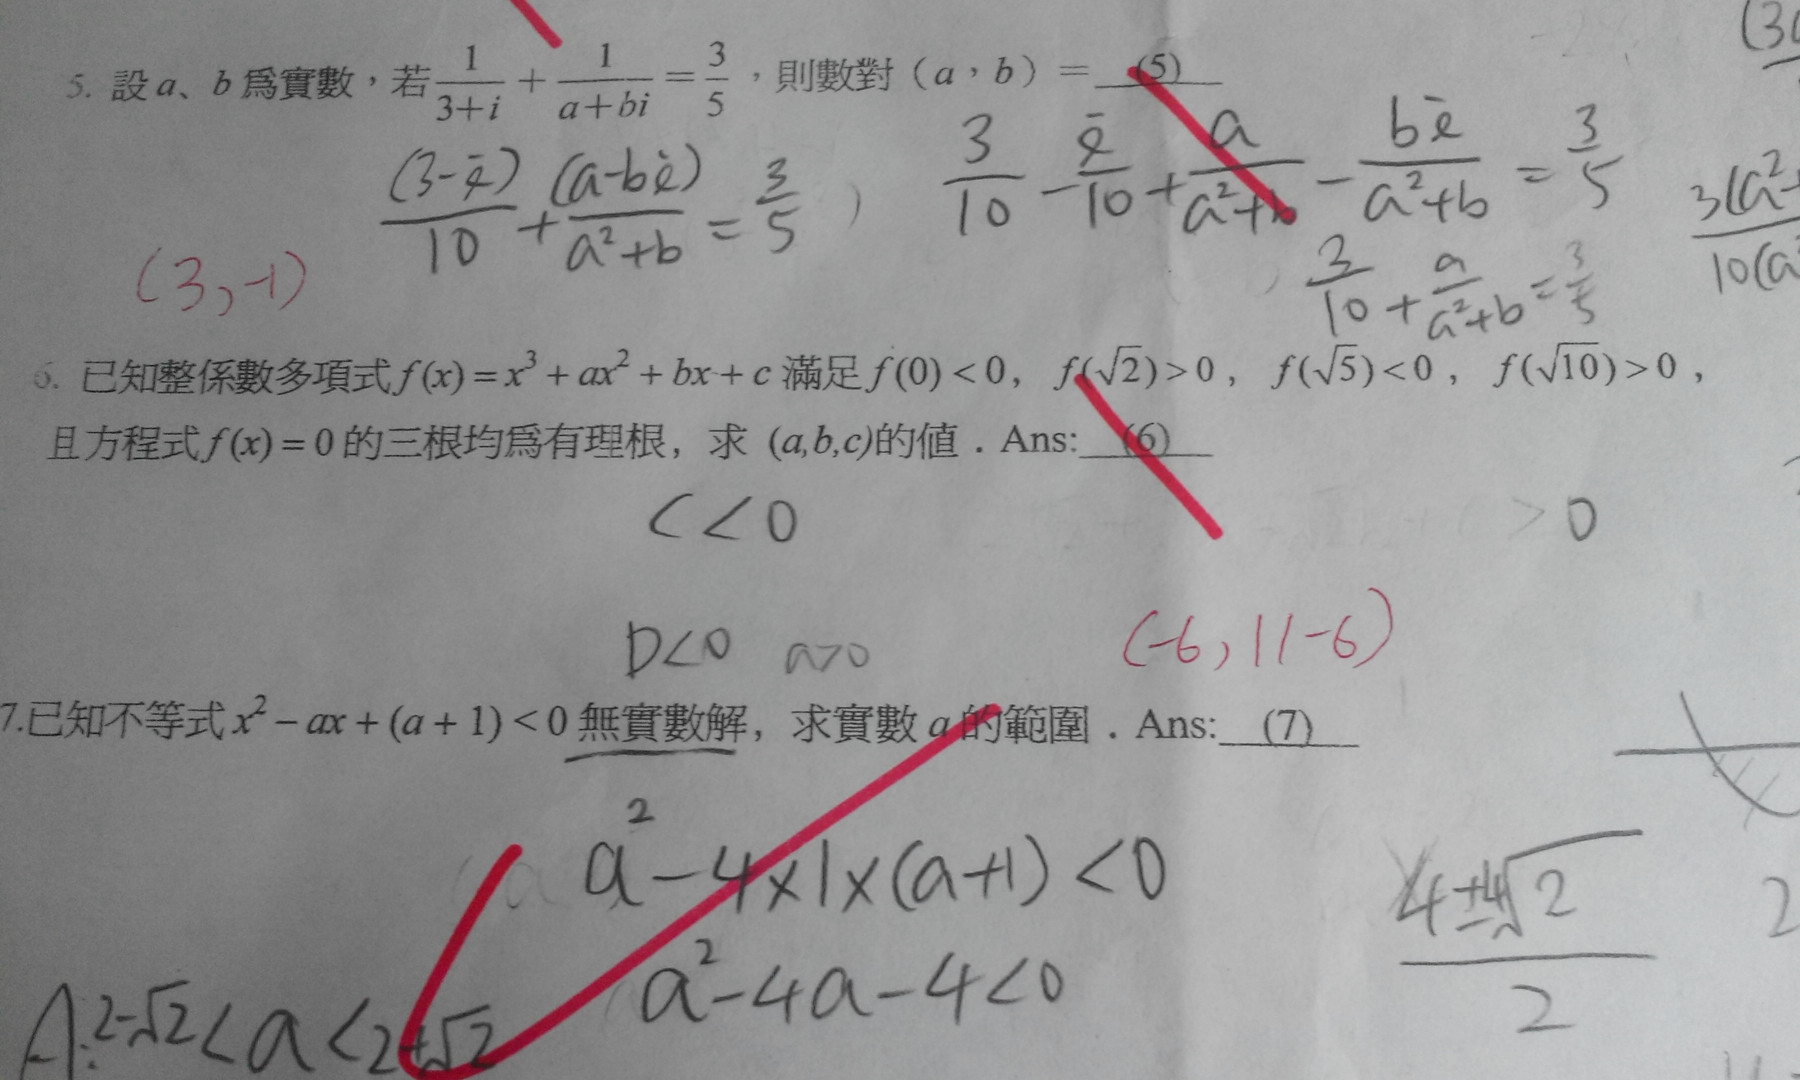 5. 設 a、b 為實數，若 1/(3+i) + 1/(a+bi) = 3/5，則數對（a，b）= (5)
(3-i)/10 + (a-bi)/(a²+b) = 3/5
3/10 - i/10 + a/(a²+b) - bi/(a²+b) = 3/5
(3,-1)
3/10 + a/(a²+b) = 3/5
6. 已知整係數多項式 f(x) = x³ + ax² + bx + c 滿足 f(0) < 0, f(√2) > 0, f(√5) < 0, f(√10) > 0,
且方程式 f(x) = 0 的三根均為有理根, 求 (a,b,c)的值．Ans: (6)
C<0
>0
D<0 a>0
(-6, 11-6)
7.已知不等式 x² − ax + (a + 1) < 0 無實數解, 求實數 a 的範圍．Ans: (7)
a²-4×1×(a+1)<0
a²-4a-4<0
(4±4√2)/2
2
A: 2-√2<a<2+√2